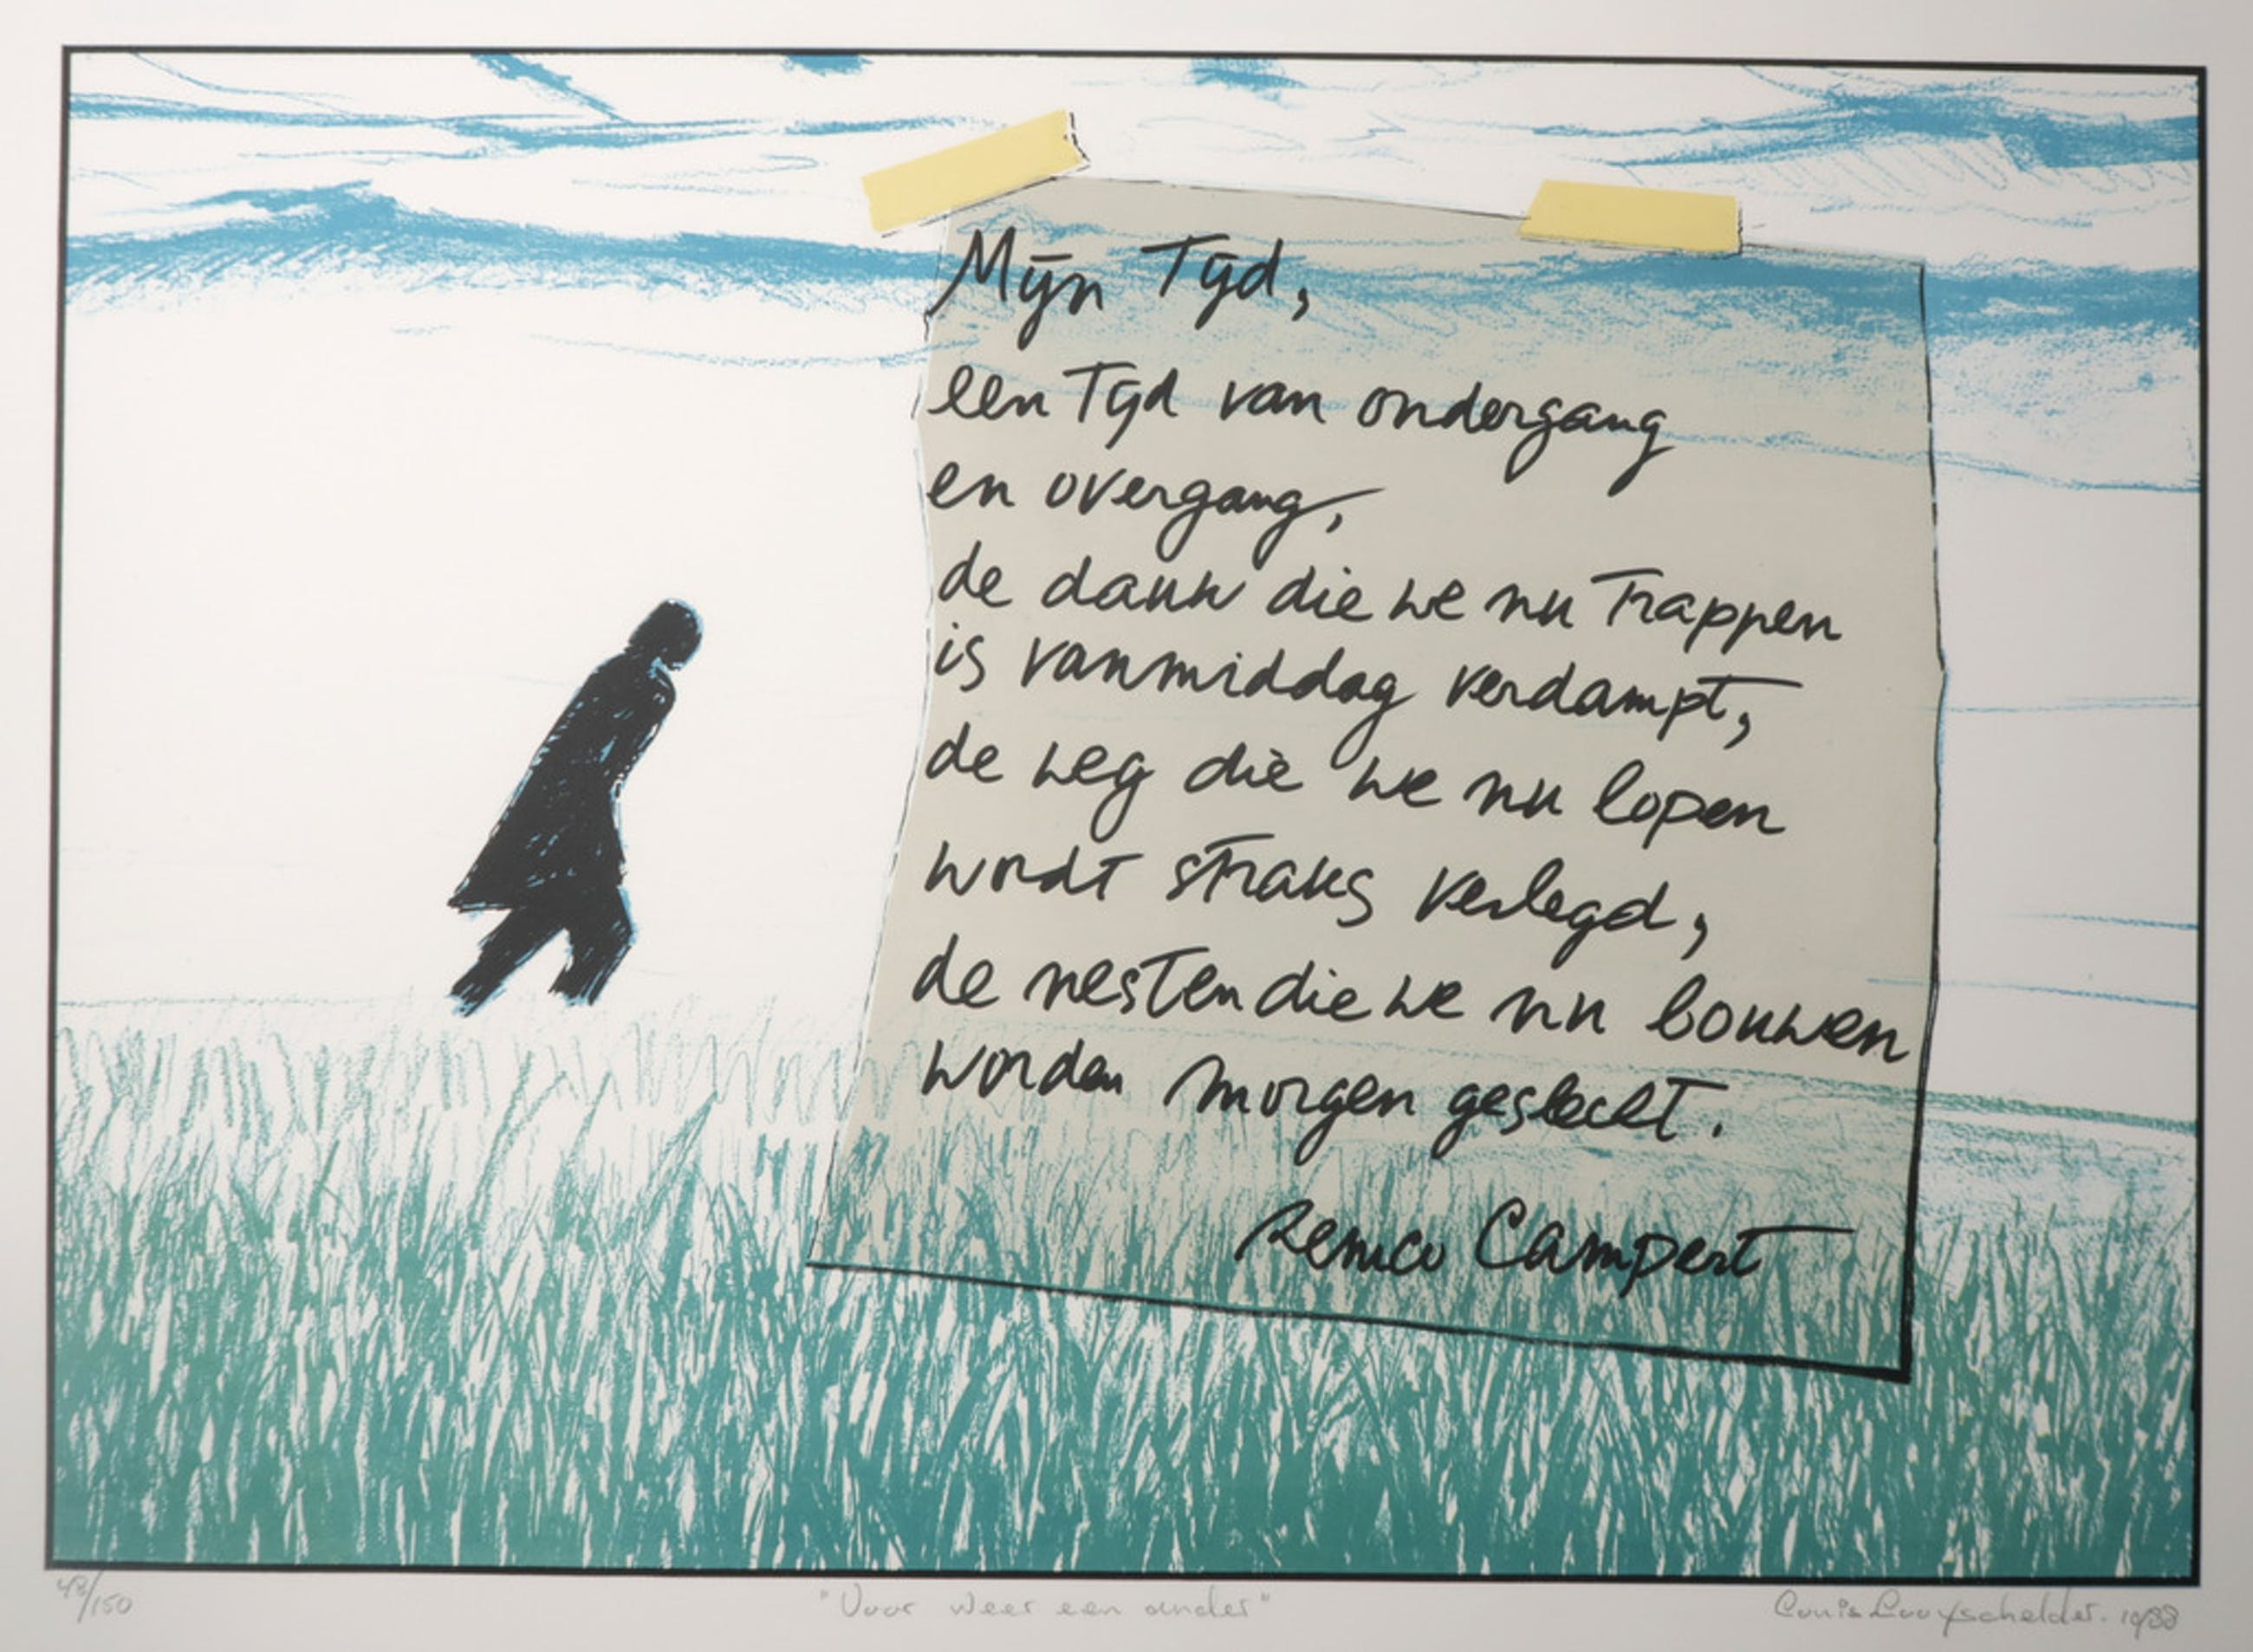 Mijn Tijd,
een Tijd van ondergang
en overgang,
de dauw die we nu Trappen
is vanmiddag verdampt,
de weg die we nu lopen
wordt straks verlegd,
de nesten die we nu bouwen
worden morgen geslecht.
Remco Campert
/150 "Voor weer een ander" Louis Looyschelder. 1988